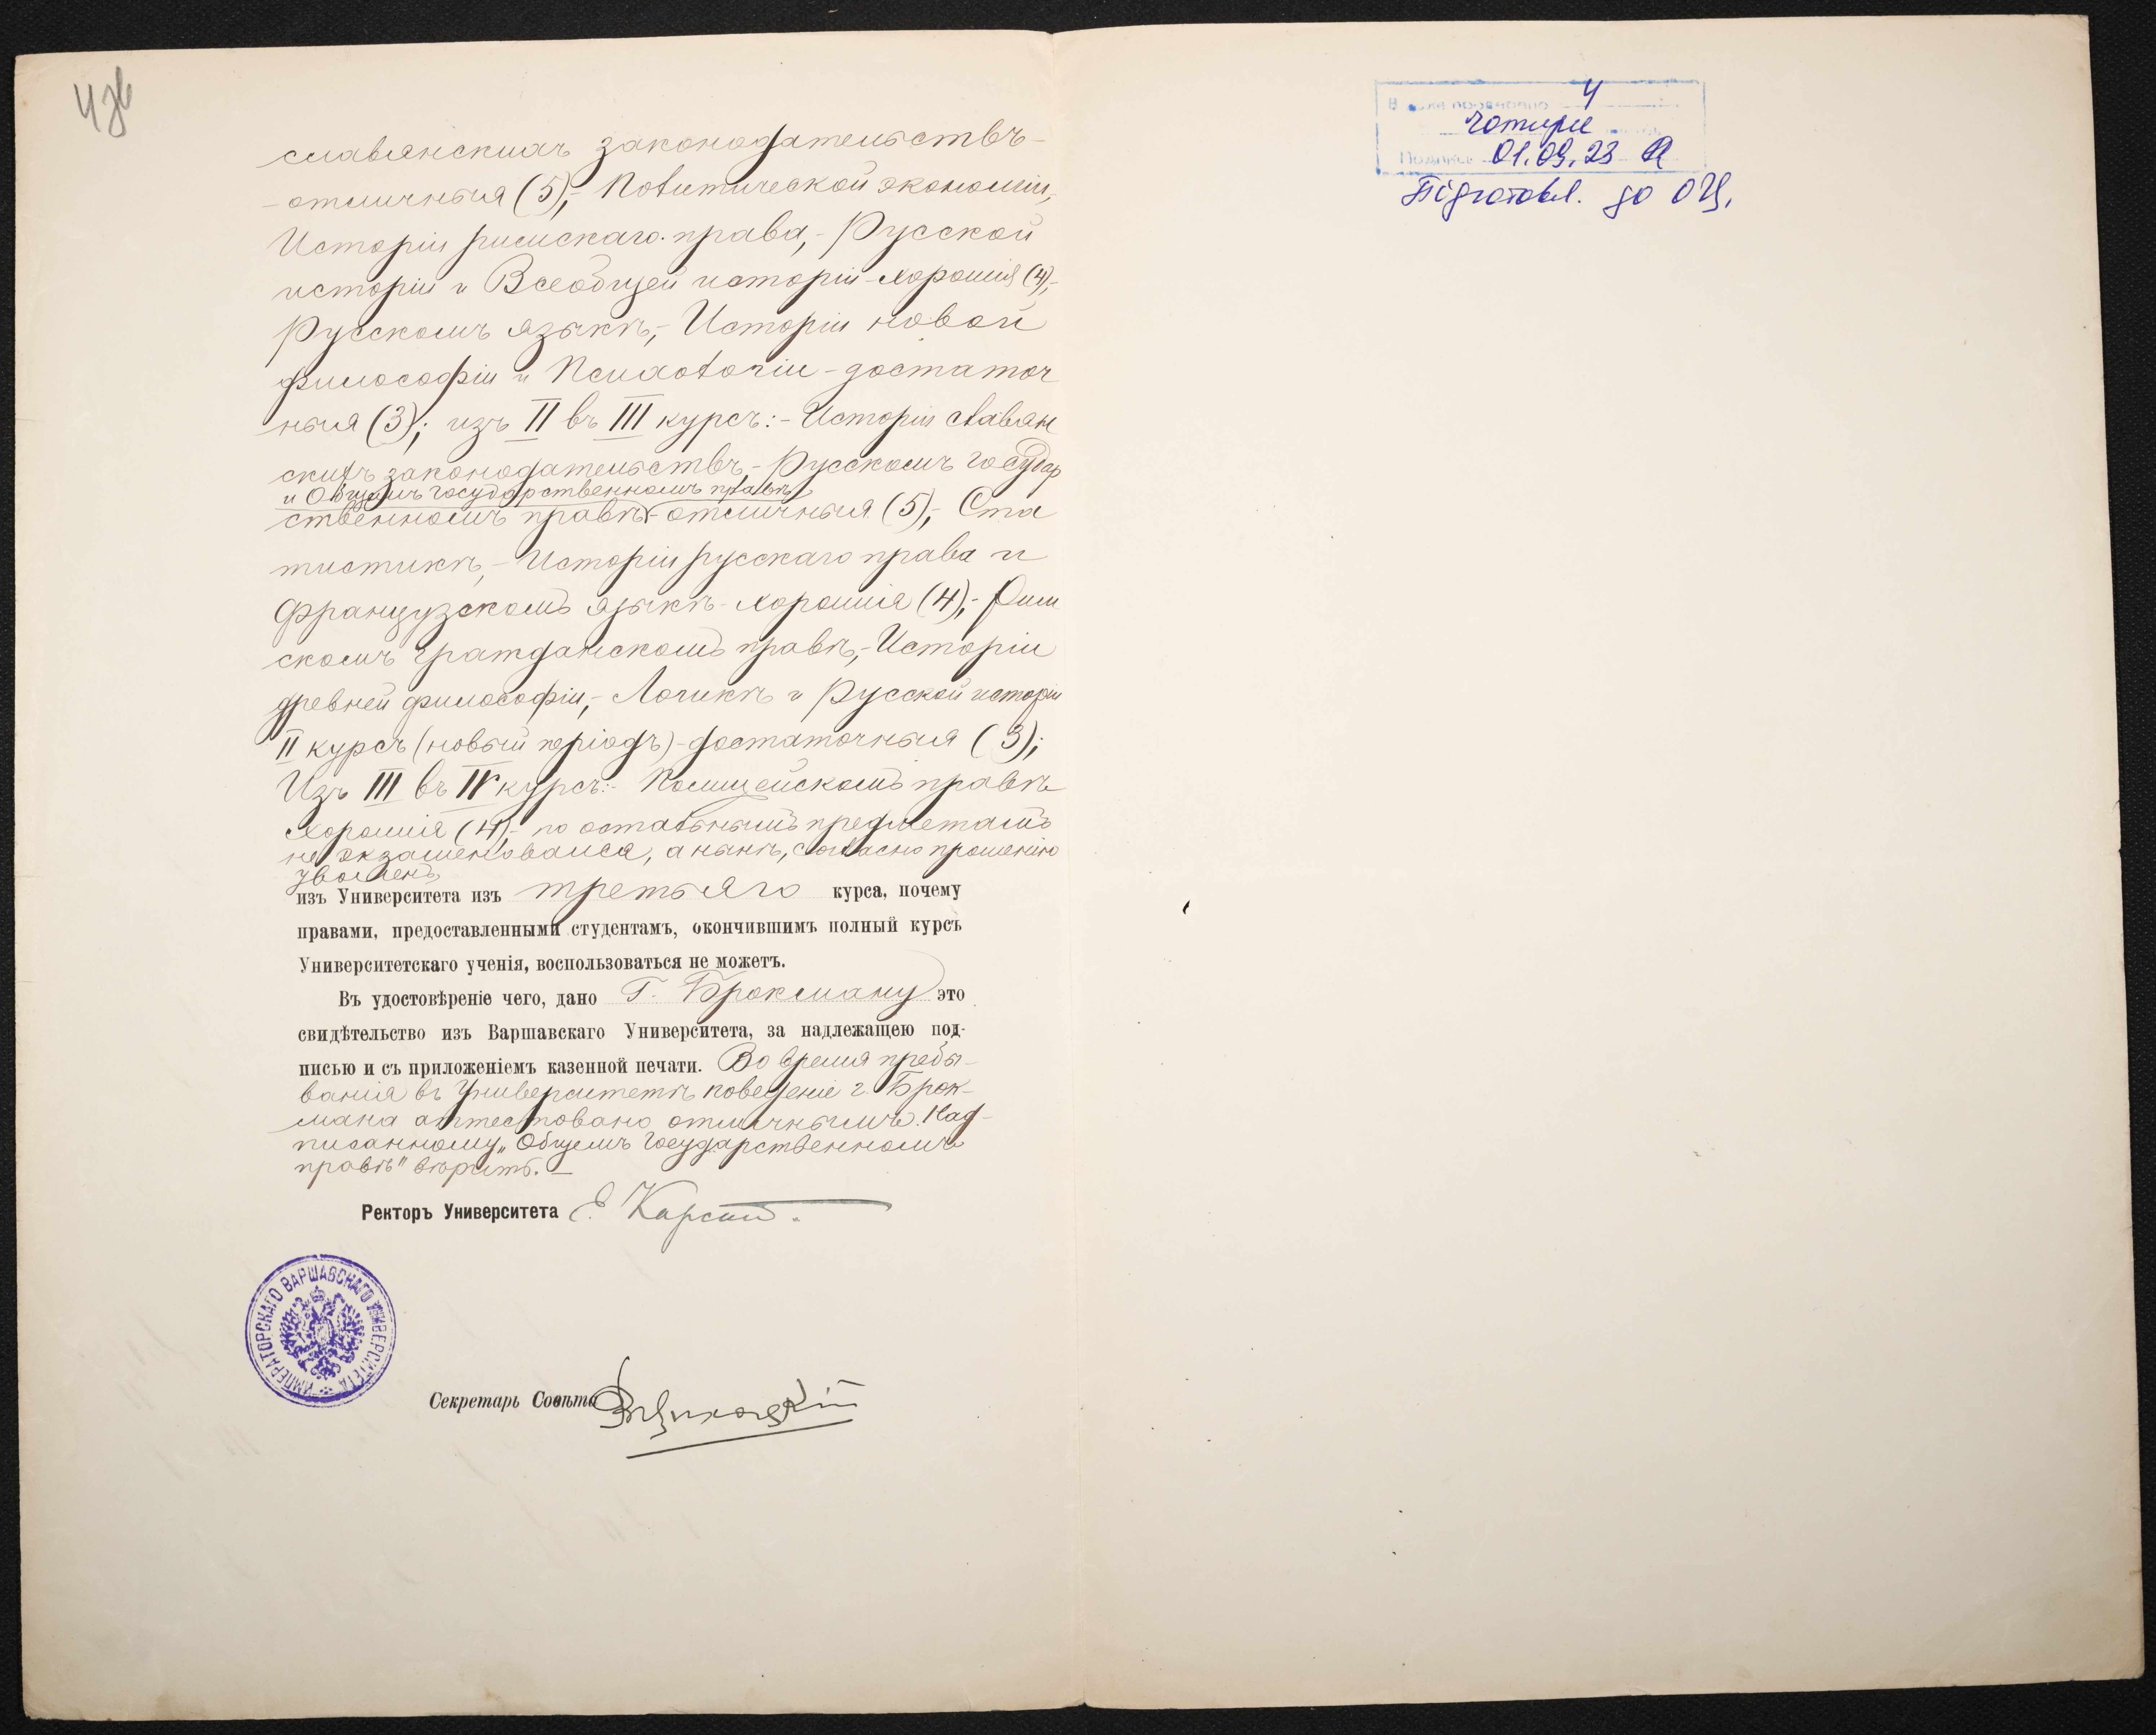 4зв
славянскихъ законодательствъ-
-отличныя (5),- Политической экономіи,
Исторіи римскаго права,- Русской
исторіи и Всеобщей исторіи-хорошія (4),-
Русскомъ языкѣ,- Исторіи новой
философіи и Психологіи-достаточ
ныя (3); изъ II въ III курсъ:- Исторіи славян
скихъ законодательствъ,- Русскомъ государ
и Общемъ государственномъ правѣ
ственномъ правѣ-отличныя (5),- Ста
тистикѣ,- Исторіи русскаго права и
Французскомъ языкѣ-хорошія (4),- Рим
скомъ гражданскомъ правѣ,- Исторіи
древней философіи,- Логикѣ и Русской исторіи
II курсъ (новый періодъ)-достаточныя (3);
Изъ III въ IV курсъ:- Полицейскомъ правѣ
хорошія (4),- по остальнымъ предметамъ
не экзаменовался, а нынѣ, согласно прошенію
уволенъ
изъ Университета изъ третьяго курса, почему
правами, предоставленными студентамъ, окончившимъ полный курсъ
Университетскаго ученія, воспользоваться не можетъ.
Въ удостовѣреніе чего, дано Г. Брокману это
свидѣтельство изъ Варшавскаго Университета, за надлежащею под-
писью и съ приложеніемъ казенной печати. Во время пребы-
ванія въ Университетѣ поведеніе г. Брок-
мана аттестовано отличнымъ. Над-
писанному „Общемъ Государственномъ
правѣ" вѣрить.-
Ректоръ Университета Е. Карскій.
ИМПЕРАТОРСКАГО ВАРШАВСКАГО УНИВЕРСИТЕТА
Секретарь Совѣта
4
чотири
01.09.23
Підготовл. до ОЦ.